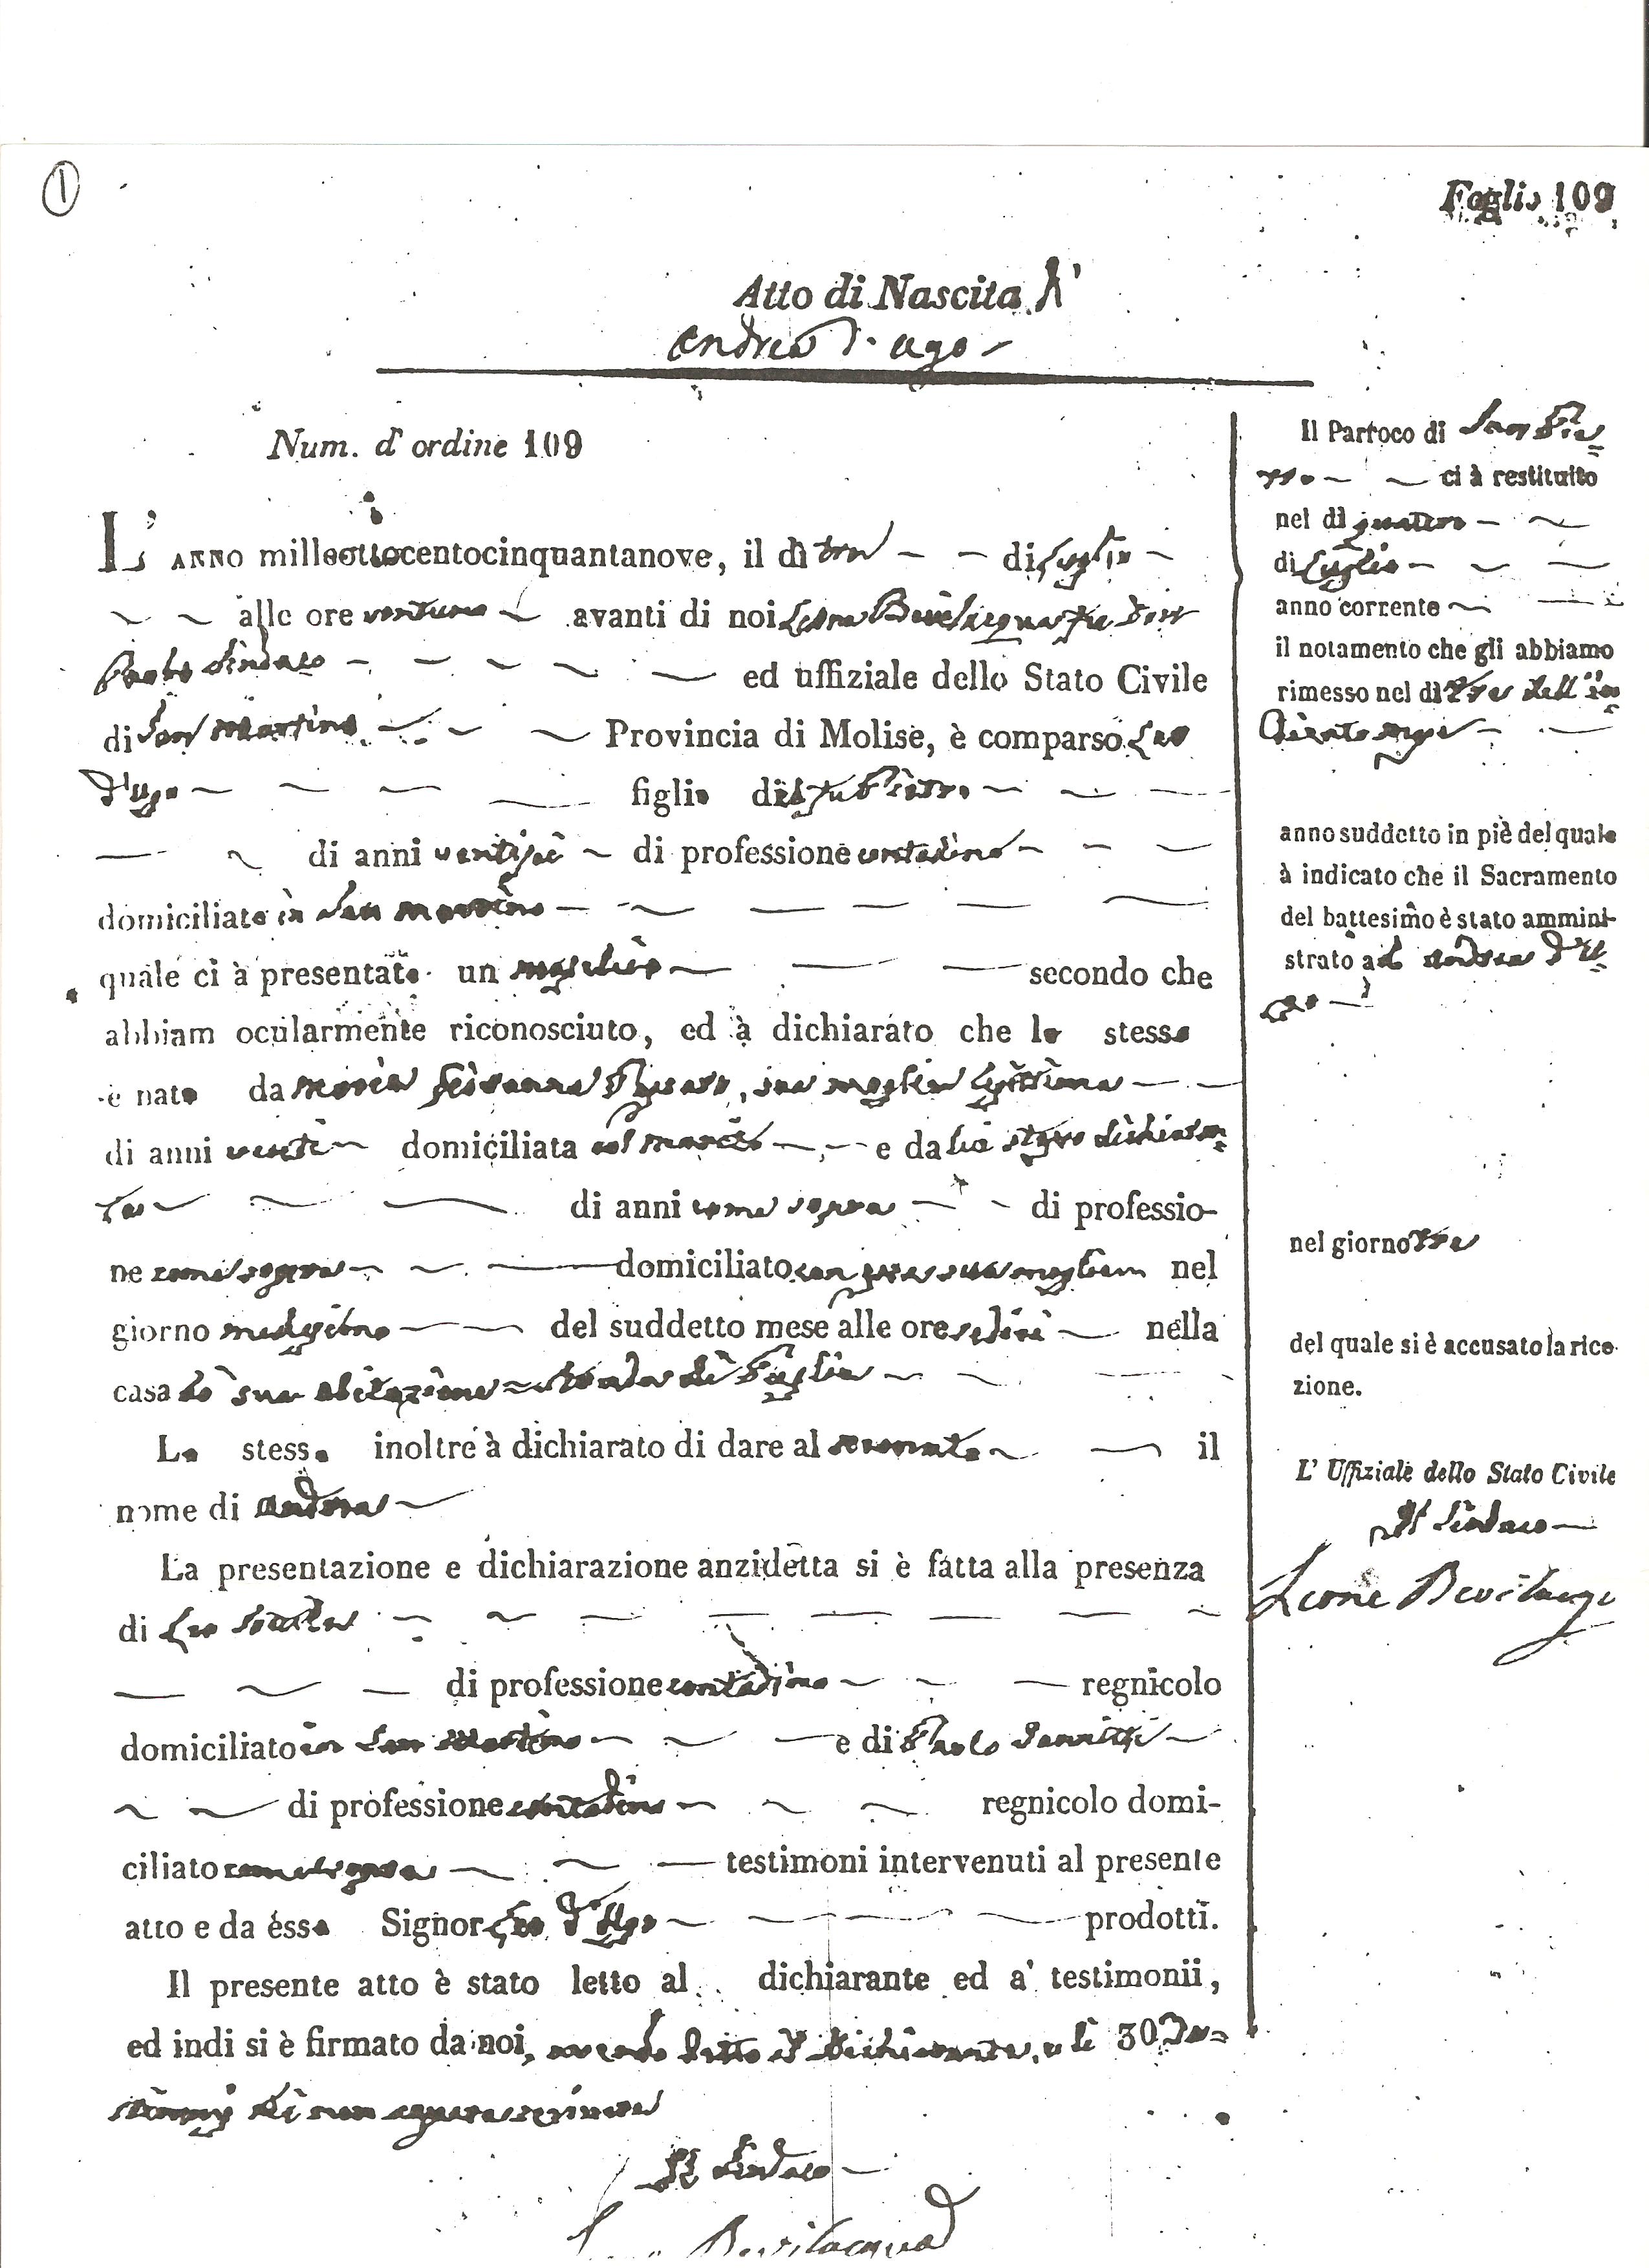 1
Foglio 109
Atto di Nascita D'
Andrea D'Ugo
Num. d'ordine 109
L'anno milleottocentocinquantanove, il dì tre di Luglio
alle ore ventuno avanti di noi Leone Bevilacqua fu Don
Paolo Sindaco ed uffiziale dello Stato Civile
di San Martino Provincia di Molise, è comparso Leo
D'Ugo figlio del fu Pietro
di anni ventisei di professione contadino
domiciliato in San Martino
quale ci à presentato un maschio secondo che
abbiam ocularmente riconosciuto, ed à dichiarato che lo stesso
è nato da Maria Giovanna, sua moglie legittima
di anni venti domiciliata col marito e da lui stesso dichiaran=
te di anni come sopra di professio-
ne come sopra domiciliato con sua moglie nel
giorno medesimo del suddetto mese alle ore sedici nella
casa di sua abitazione strada di Puglia
Lo stesso inoltre à dichiarato di dare al neonato il
nome di Andrea
La presentazione e dichiarazione anzidetta si è fatta alla presenza
di Leo
di professione contadino regnicolo
domiciliato in San Martino e di Paolo
di professione contadino regnicolo domi-
ciliato come sopra testimoni intervenuti al presente
atto e da esso Signor Leo D'Ugo prodotti.
Il presente atto è stato letto al dichiarante ed a' testimonii,
ed indi si è firmato da noi, avendo detto il dichiarante, e li
di non sapere scrivere
Il Sindaco
Bevilacqua
Il Parroco di San Pie=
tro ci à restituito
nel dì quattro
di Luglio
anno corrente
il notamento che gli abbiamo
rimesso nel dì tre dell'in
dicato mese
anno suddetto in piè del quale
à indicato che il Sacramento
del battesimo è stato ammini-
strato ad Andrea D'U=
go
nel giorno tre
del quale si è accusato la rice-
zione.
L'Uffiziale dello Stato Civile
Il Sindaco
Leone Bevilacqua